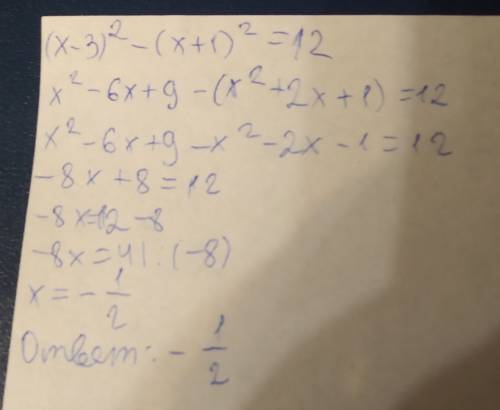 (x-3)² - (x+1)² = 12
x² - 6x + 9 - (x² + 2x + 1) = 12
x² - 6x + 9 - x² - 2x - 1 = 12
-8x + 8 = 12
-8x=12-8
-8x = 4 | : (-8)
x = - 1/2
Ответ: - 1/2